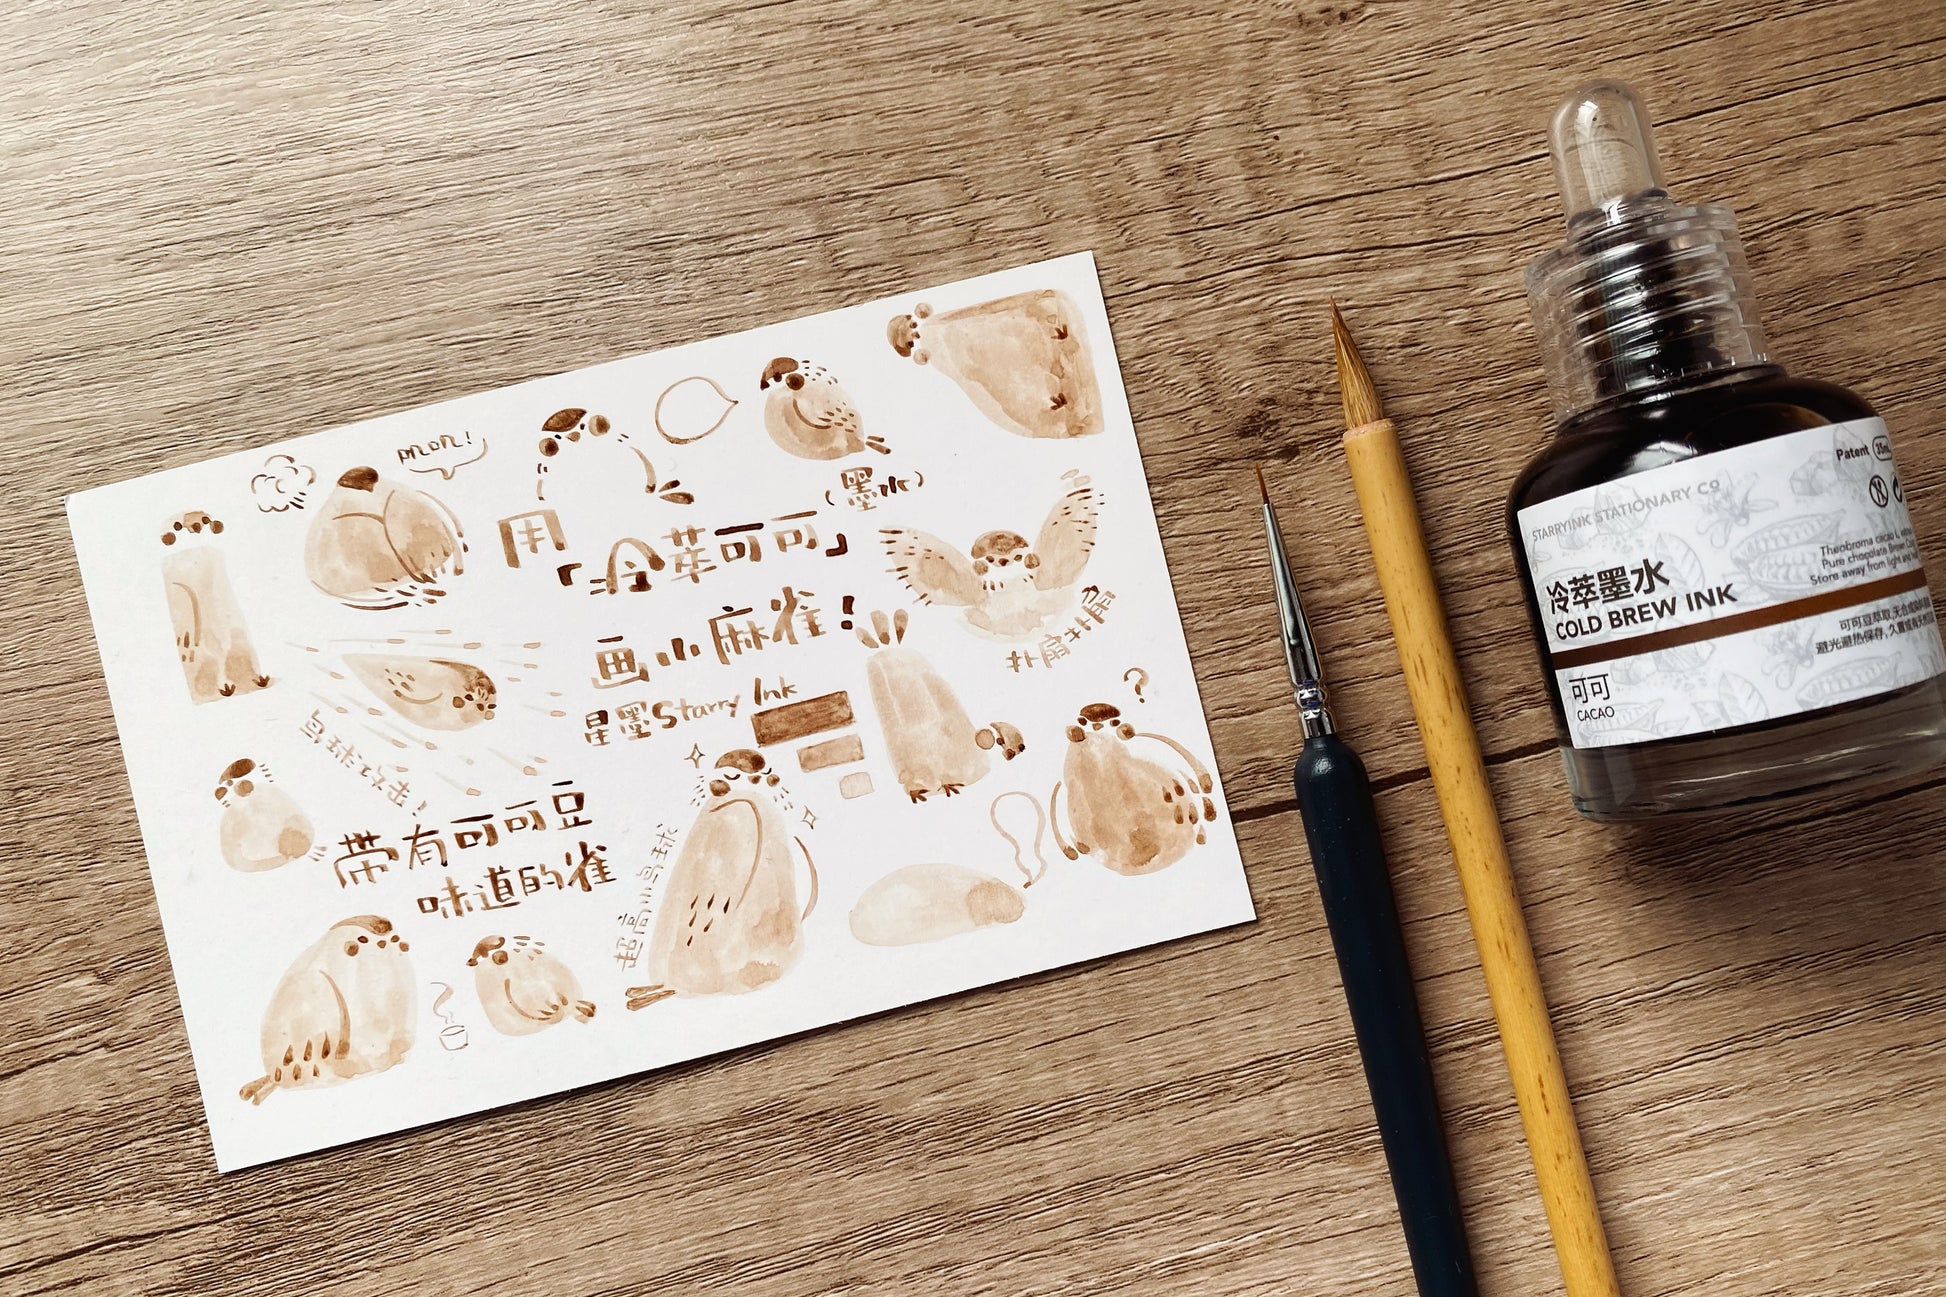 mon!
用「冷萃可可」
(墨水)
画小麻雀!
星墨 Starry Ink
扑扇扑扇
鸟球攻击!
?
带有可可豆
味道的雀
超高小鸟球
STARRYINK STATIONARY Co
Patent 35ml
冷萃墨水
COLD BREW INK
Theobroma cacao L.
Pure chocolate Brew
Store away from light and
可可
CACAO
可可豆萃取,无合成染料
避光避热保存,久置或有